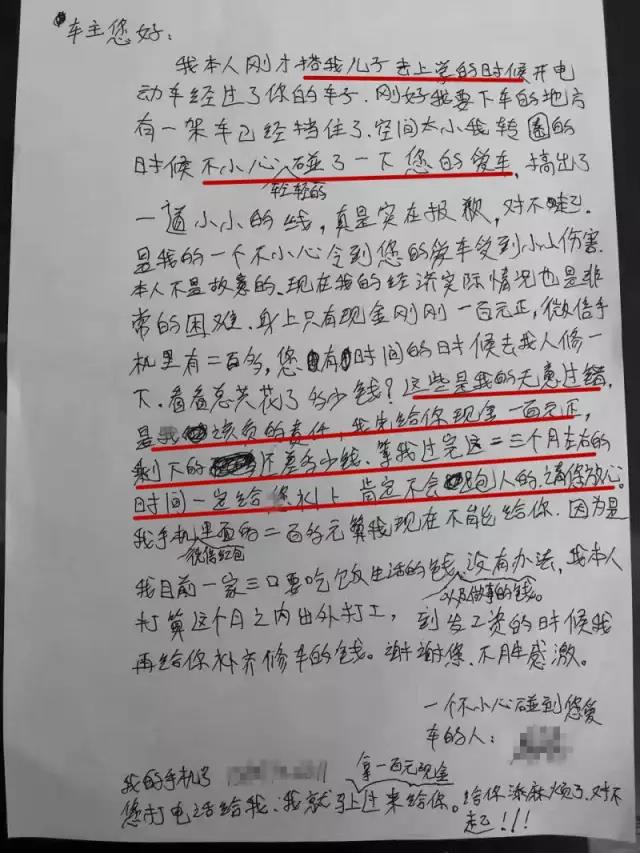 车主您好:
我本人刚才搭我儿子去上学的时候开电
动车经过了你的车子.刚好我要下车的地方
有一架车已经挡住了.空间太小我转圈的
时候不小心碰了一下您的爱车,搞出了
轻轻的
一道小小的线,真是实在报歉,对不起.
是我的一个不小心令到您的爱车受到小小伤害.
本人不是故意的.现在我的经济实际情况也是非
常的困难.身上只有现金刚刚一百元正,微信手
机里有二百多,您有时间的时候去找人修一
下.看看总共花了多少钱?这些是我的无意过错,
是我该负的责任,我先给你现金一百元正,
剩下的还差多少钱.等我过完这二三个月左右的
时间一定给您补上 肯定不会跑人的.请你放心.
我手机里面的二百多元算我现在不能给你.因为是
微信红包
我目前一家三口要吃饭生活的钱.没有办法,我本人
以及做事的钱。
打算这个月之内出外打工,到发工资的时候我
再给你补齐修车的钱。谢谢您.不胜感激。
一个不小心碰到您爱
车的人:
我的手机号
拿一百元现金
您打电话给我.我就马上过来给你。给你添麻烦了.对不
起!!!